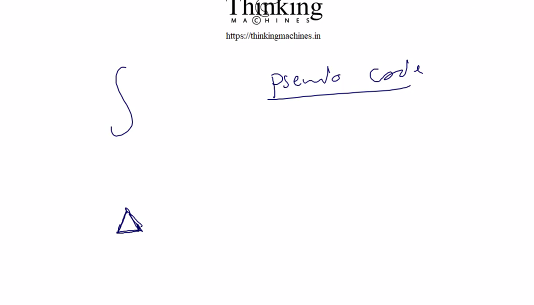 Thinking
MACHINES
https://thinkingmachines.in
∫ Pseudo code
Δ